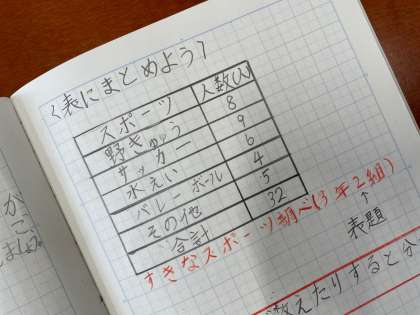 〈表にまとめよう〉
スポーツ 人数(人)
野きゅう 8
サッカー 9
水えい 6
バレーボール 4
その他 5
合計 32
すきなスポーツ調べ(3年2組)
↑
表題
数えたりすると分
が